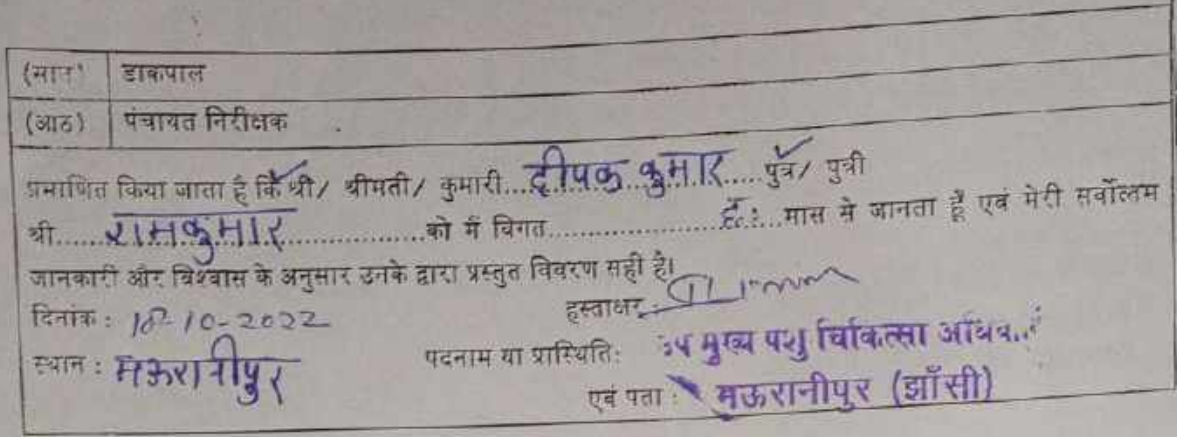 (सात) डाकपाल
(आठ) पंचायत निरीक्षक
प्रमाणित किया जाता है कि श्री/ श्रीमती/ कुमारी...दीपक कुमार.....पुत्र/ पुत्री
श्री......रामकुमार..................को मैं विगत.......................छः...मास से जानता हूँ एवं मेरी सर्वोत्तम
जानकारी और विश्वास के अनुसार उनके द्वारा प्रस्तुत विवरण सही है।
हस्ताक्षर:
दिनांक: 10-2022
स्थान : मऊरानीपुर पदनाम या प्रास्थिति: उप मुख्य पशु चिकित्सा
एवं पता : मऊरानीपुर (झाँसी)